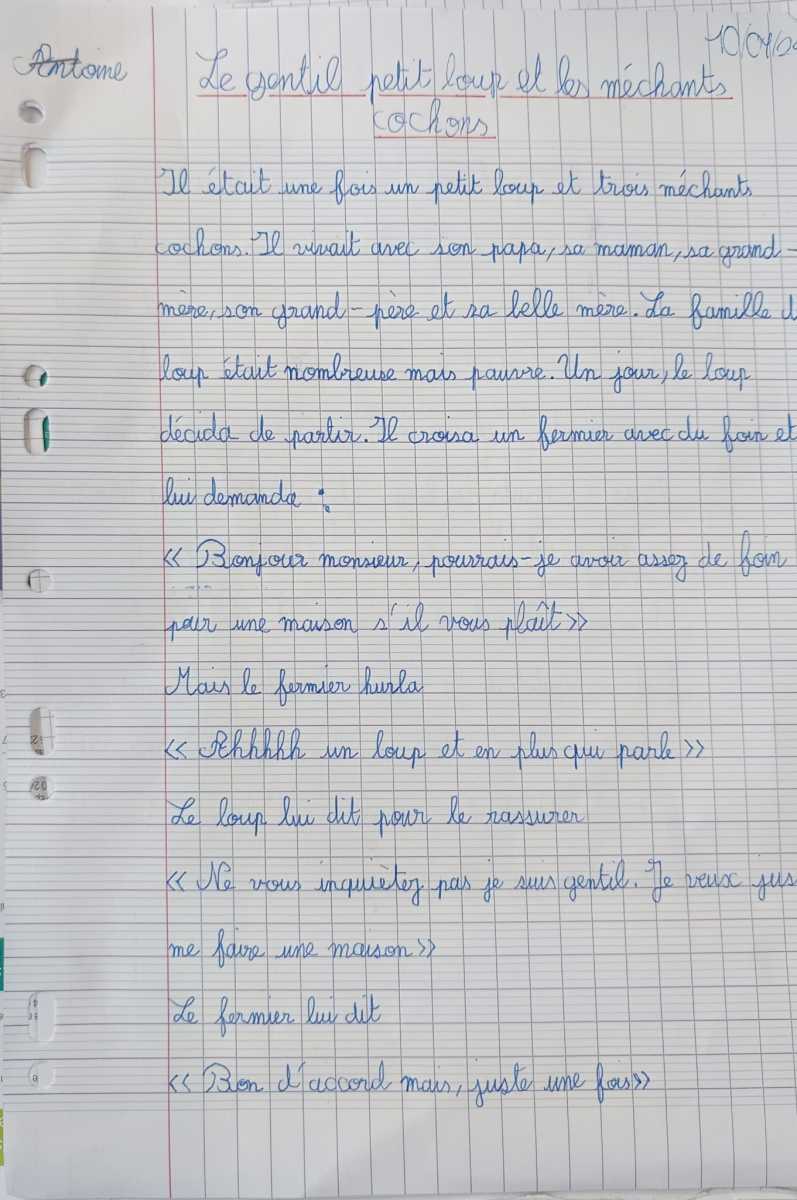 10/01/0
Antoine
Le gentil petit loup et les méchants
cochons
Il était une fois un petit loup et trois méchants
cochons. Il vivait avec son papa, sa maman, sa grand-
mère, son grand-père et sa belle mère. La famille d
loup était nombreuse mais pauvre. Un jour, le loup
décida de partir. Il croisa un fermier avec du foin et
lui demanda :
« Bonjour monsieur, pourrais-je avoir assez de foin
pour une maison s'il vous plaît »
Mais le fermier hurla
« Ahhhhh un loup et en plus qui parle »
Le loup lui dit pour le rassurer
« Ne vous inquiètez pas je suis gentil. Je veux jus
me faire une maison »
Le fermier lui dit
« Bon d'accord mais, juste une fois »